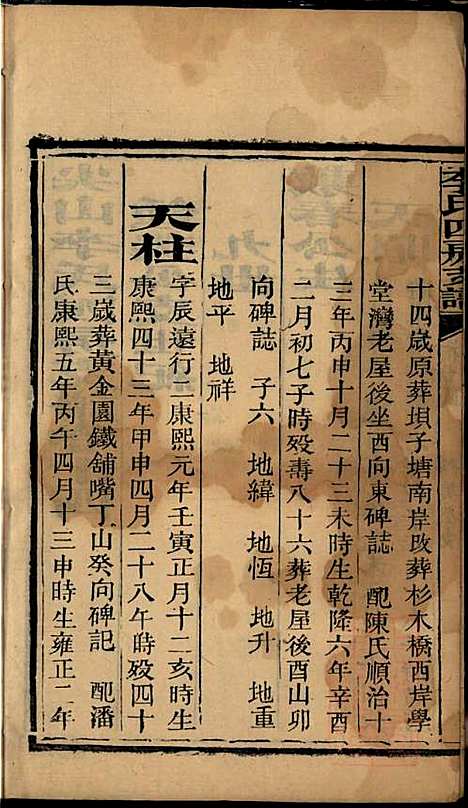 李氏四房支譜
十四歲原葬垻子塘南岸改葬杉木橋西岸學
堂灣老屋後坐酉向東碑誌 配陳氏順治十
三年丙申十月二十三未時生乾隆六年辛酉
二月初七子時歿壽八十六葬老屋後酉山卯
向碑誌 子六 地緯 地恆 地升 地重
地平 地祥
天柱
字辰遠行二康熙元年壬寅正月十二亥時生
康熙四十三年甲申四月二十八午時歿四十
三歲葬黃金園鐵舖嘴丁山癸向碑記 配潘
氏康熙五年丙午四月十三申時生雍正二年